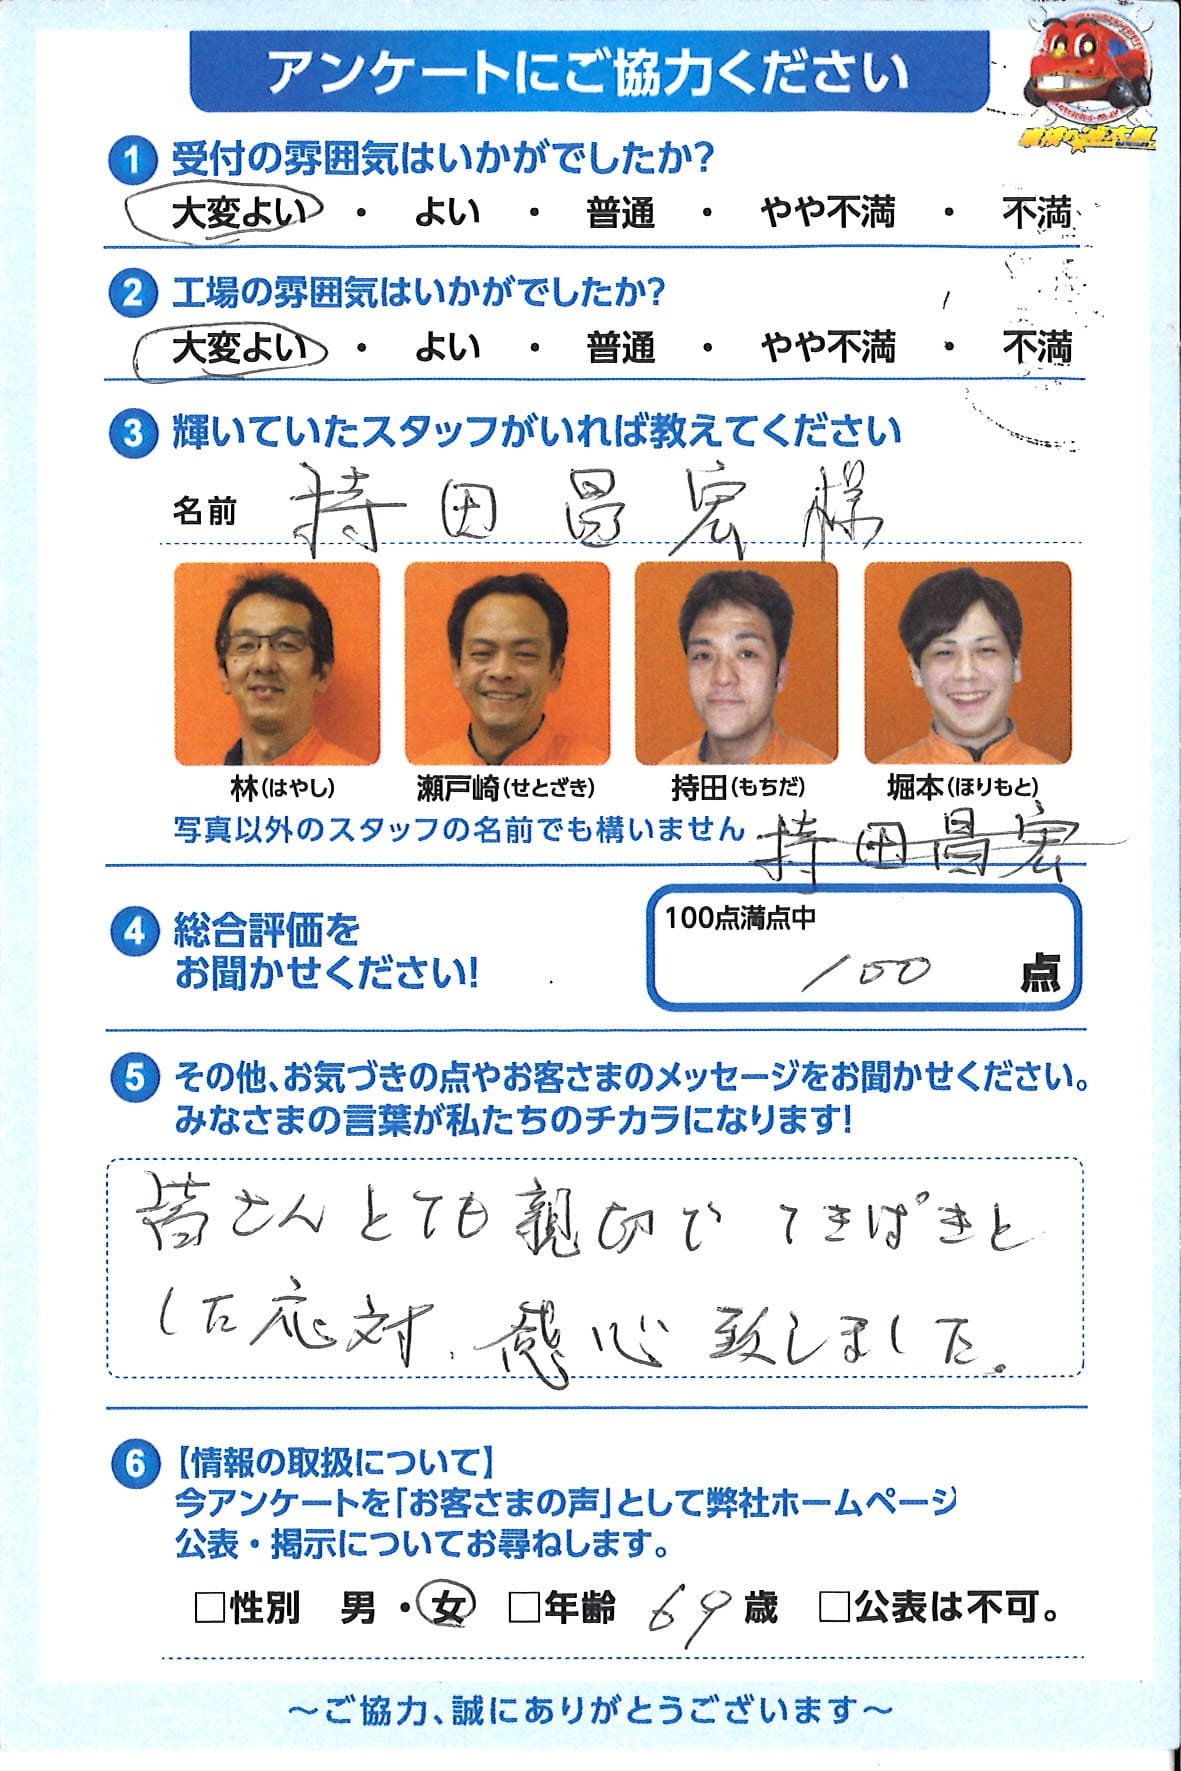 アンケートにご協力ください
1 受付の雰囲気はいかがでしたか?
大変よい ・ よい ・ 普通 ・ やや不満 ・ 不満
2 工場の雰囲気はいかがでしたか?
大変よい ・ よい ・ 普通 ・ やや不満 ・ 不満
3 輝いていたスタッフがいれば教えてください
名前 持田昌宏様
林(はやし) 瀬戸崎(せとざき) 持田(もちだ) 堀本(ほりもと)
写真以外のスタッフの名前でも構いません 持田昌宏
4 総合評価を
お聞かせください!
100点満点中
100 点
5 その他、お気づきの点やお客さまのメッセージをお聞かせください。
みなさまの言葉が私たちのチカラになります!
皆さんとても親切で てきぱきと
した応対、感心致しました。
6 【情報の取扱について】
今アンケートを「お客さまの声」として弊社ホームページ
公表・掲示についてお尋ねします。
□性別 男・女 □年齢 69歳 □公表は不可。
〜ご協力、誠にありがとうございます〜